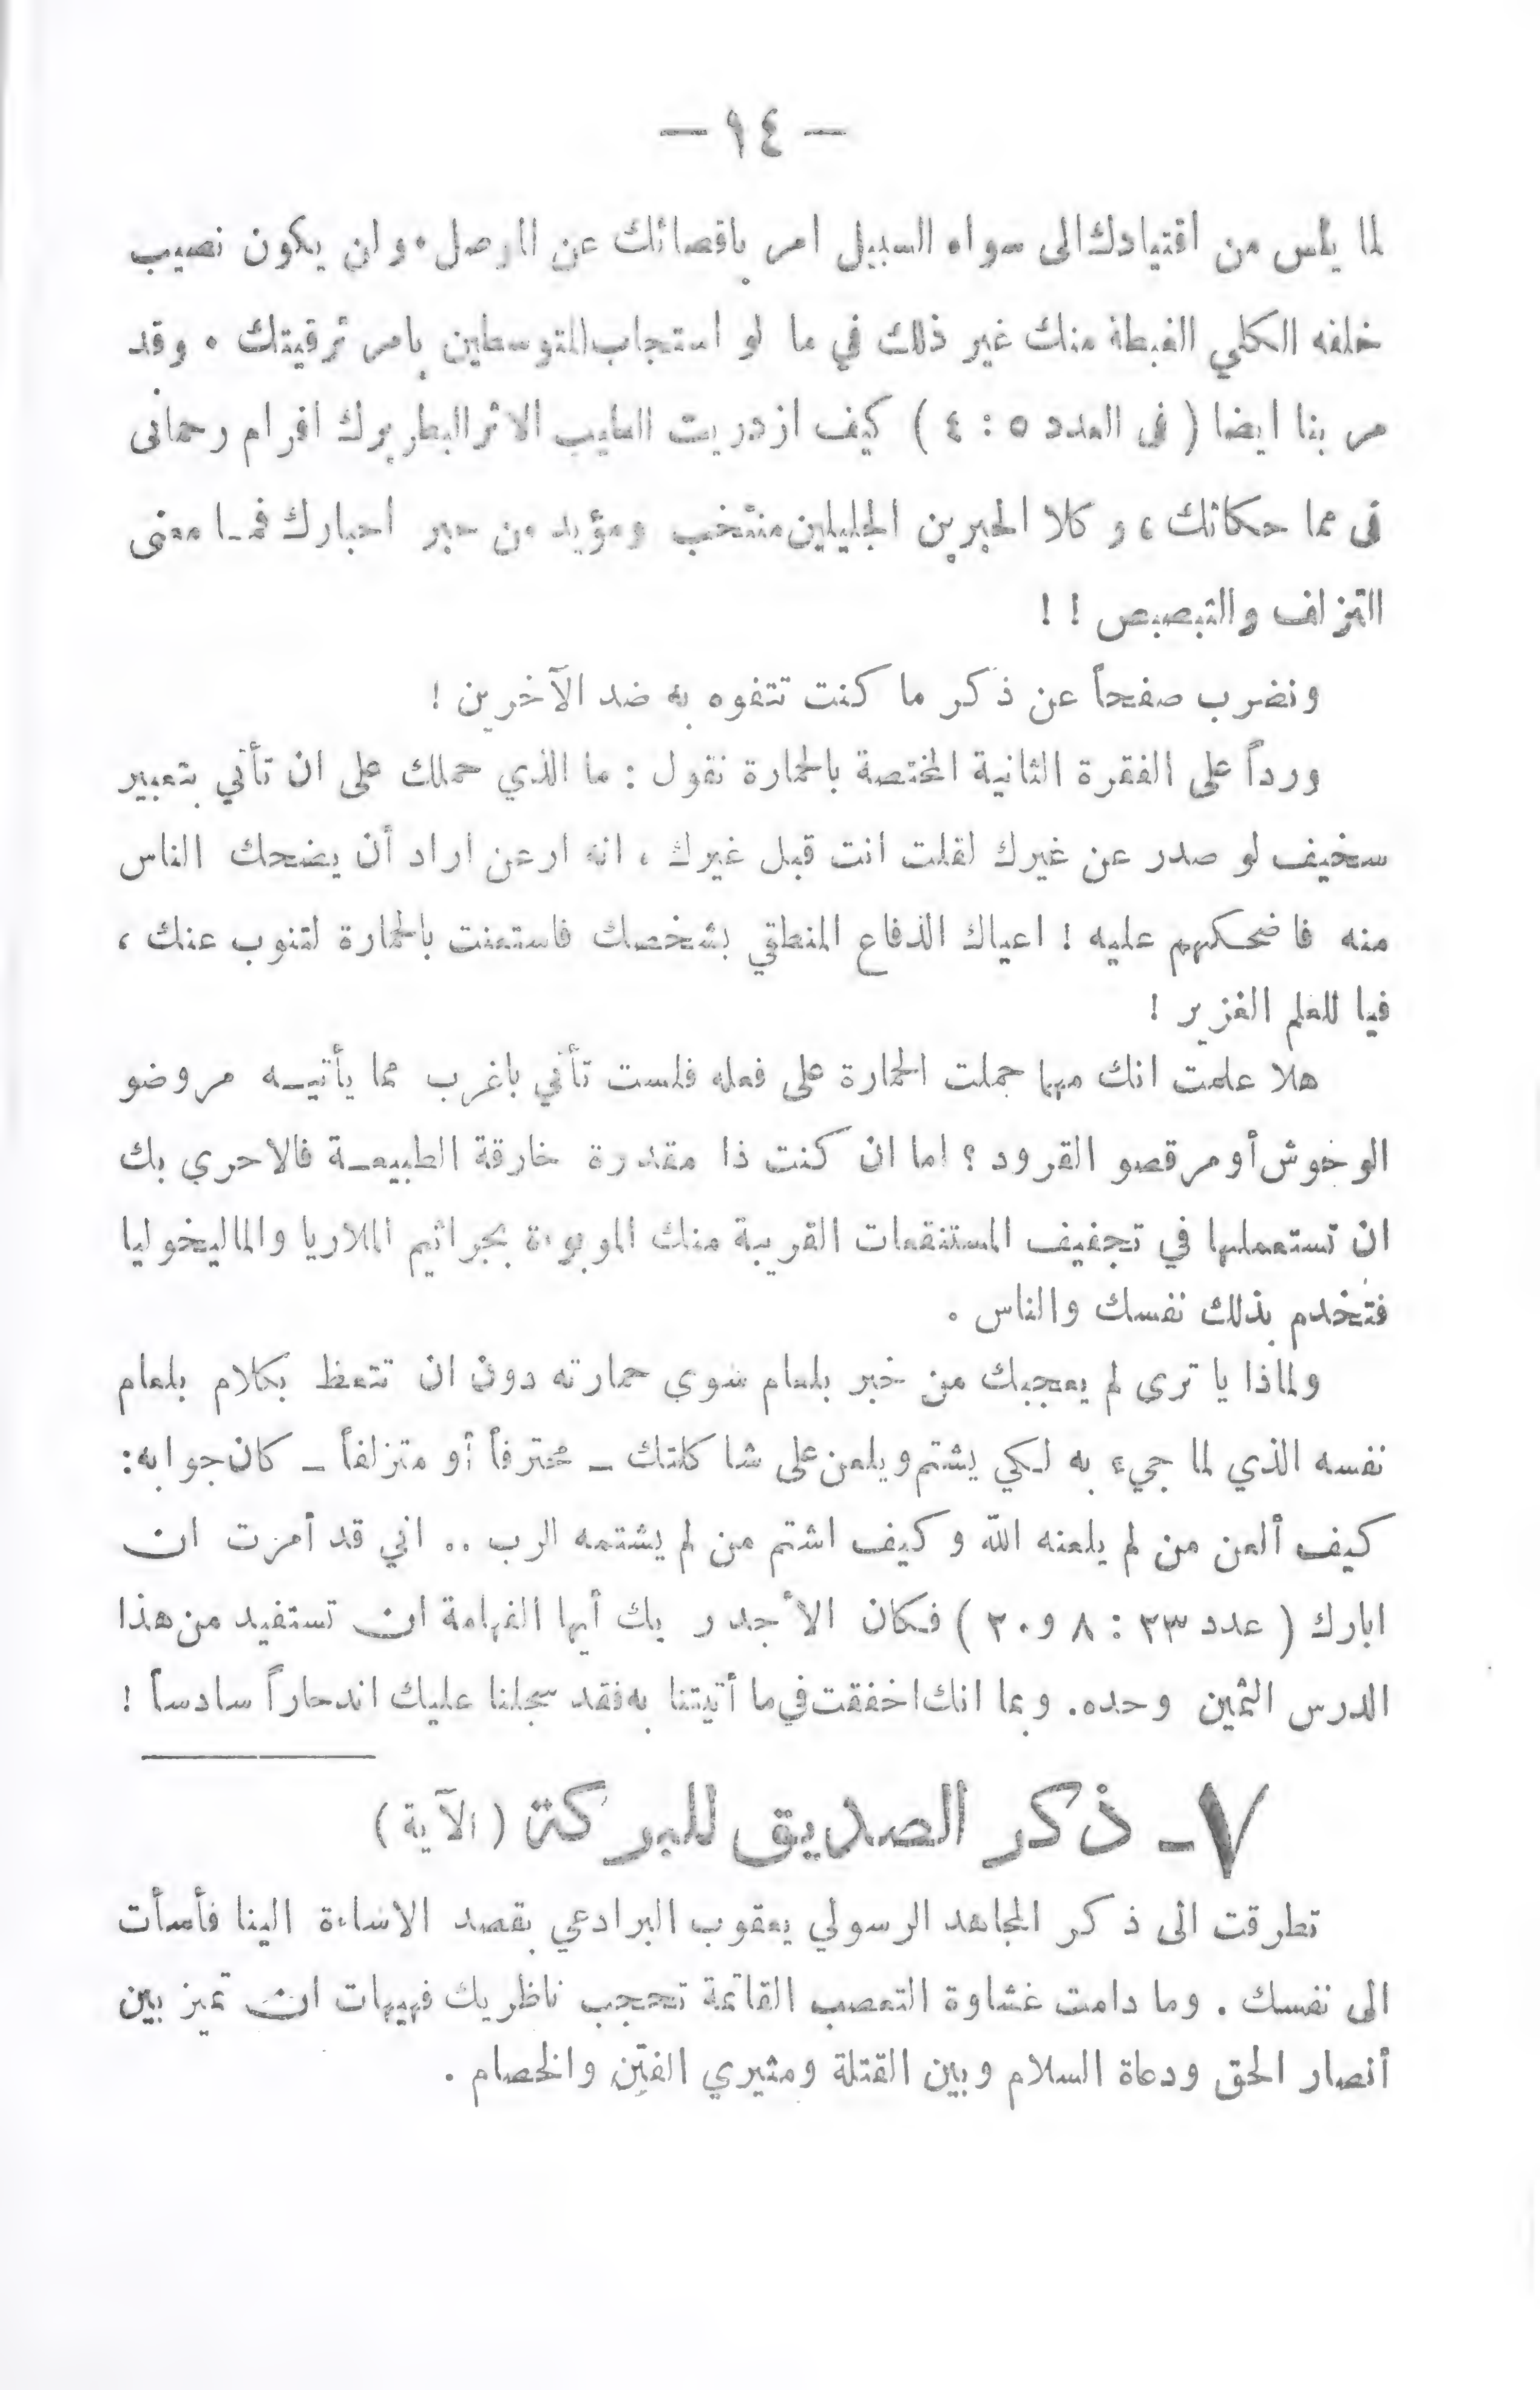 — ١٤ —
لما يأس من اقتيادك الى سواء السبيل امر باقصائك عن الموصل. وان يكون نصيب
خلفه الكلي الغبطة منك غير ذلك في ما لو استجاب المتوسطين بامر ترقيتك. وقد
مر بنا ايضا ( في العدد ٥ : ٤ ) كيف ازدريت الطيب الاثر البطريرك افرام رحماني
في مما حكاتك، و كلا الحبرين الجليلين منتخب ومؤيد من حبر احبارك فمـا معنى
التزلف والتبصبص ! !
ونضرب صفحاً عن ذكر ما كنت تتفوه به ضد الآخرين !
ورداً على الفقرة الثانية المختصة بالحمارة نقول : ما الذي حملك على ان تأتي بتعبير
سخيف لو صدر عن غيرك لقلت انت قبل غيرك ، انه ارعن اراد أن يضحك الناس
منه فاضحكهم عليه ! اعياك الدفاع المنطقي بشخصك فاستعنت بالحمارة لتنوب عنك ،
فيا للعلم الغزير !
هلا علمت انك مهما حملت الحمارة على فعله فلست تأتي باغرب مما يأتيـه مروضو
الوحوش أو مرقصو القرود ؟ اما ان كنت ذا مقدرة خارقة الطبيعـة فالاحرى بك
ان تستعملها في تجفيف المستنقعات القريبة منك الموبوءة بجراثيم الملاريا والماليخوليا
فتخدم بذلك نفسك والناس .
ولماذا يا ترى لم يعجبك من خبر بلعام سوى حمارته دون ان تتعظ بكلام بلعام
نفسه الذي لما جيء به لكي يشتم ويلعن على شاكلتك ـ محترفاً أو متزلفاً ـ كان جوابه:
كيف ألعن من لم يلعنه الله وكيف اشتم من لم يشتمه الرب .. اني قد أمرت ان
ابارك ( عدد ٢٣ : ٨ و ٢٠ ) فكان الأجدر بك أيها الفهامة ان تستفيد من هذا
الدرس الثمين وحده. وبما انك اخفقت في ما أتيتنا به فقد سجلنا عليك اندحاراً سادساً !
٧ـ ذكر الصديق للبركة ( الآية )
تطرقت الى ذكر المجاهد الرسولي يعقوب البرادعي بقصد الاساءة الينا فأسأت
الى نفسك . وما دامت غشاوة التعصب القاتمة تحجب ناظريك فهيهات ان تميز بين
أنصار الحق ودعاة السلام وبين القتلة ومثيري الفتن والخصام .